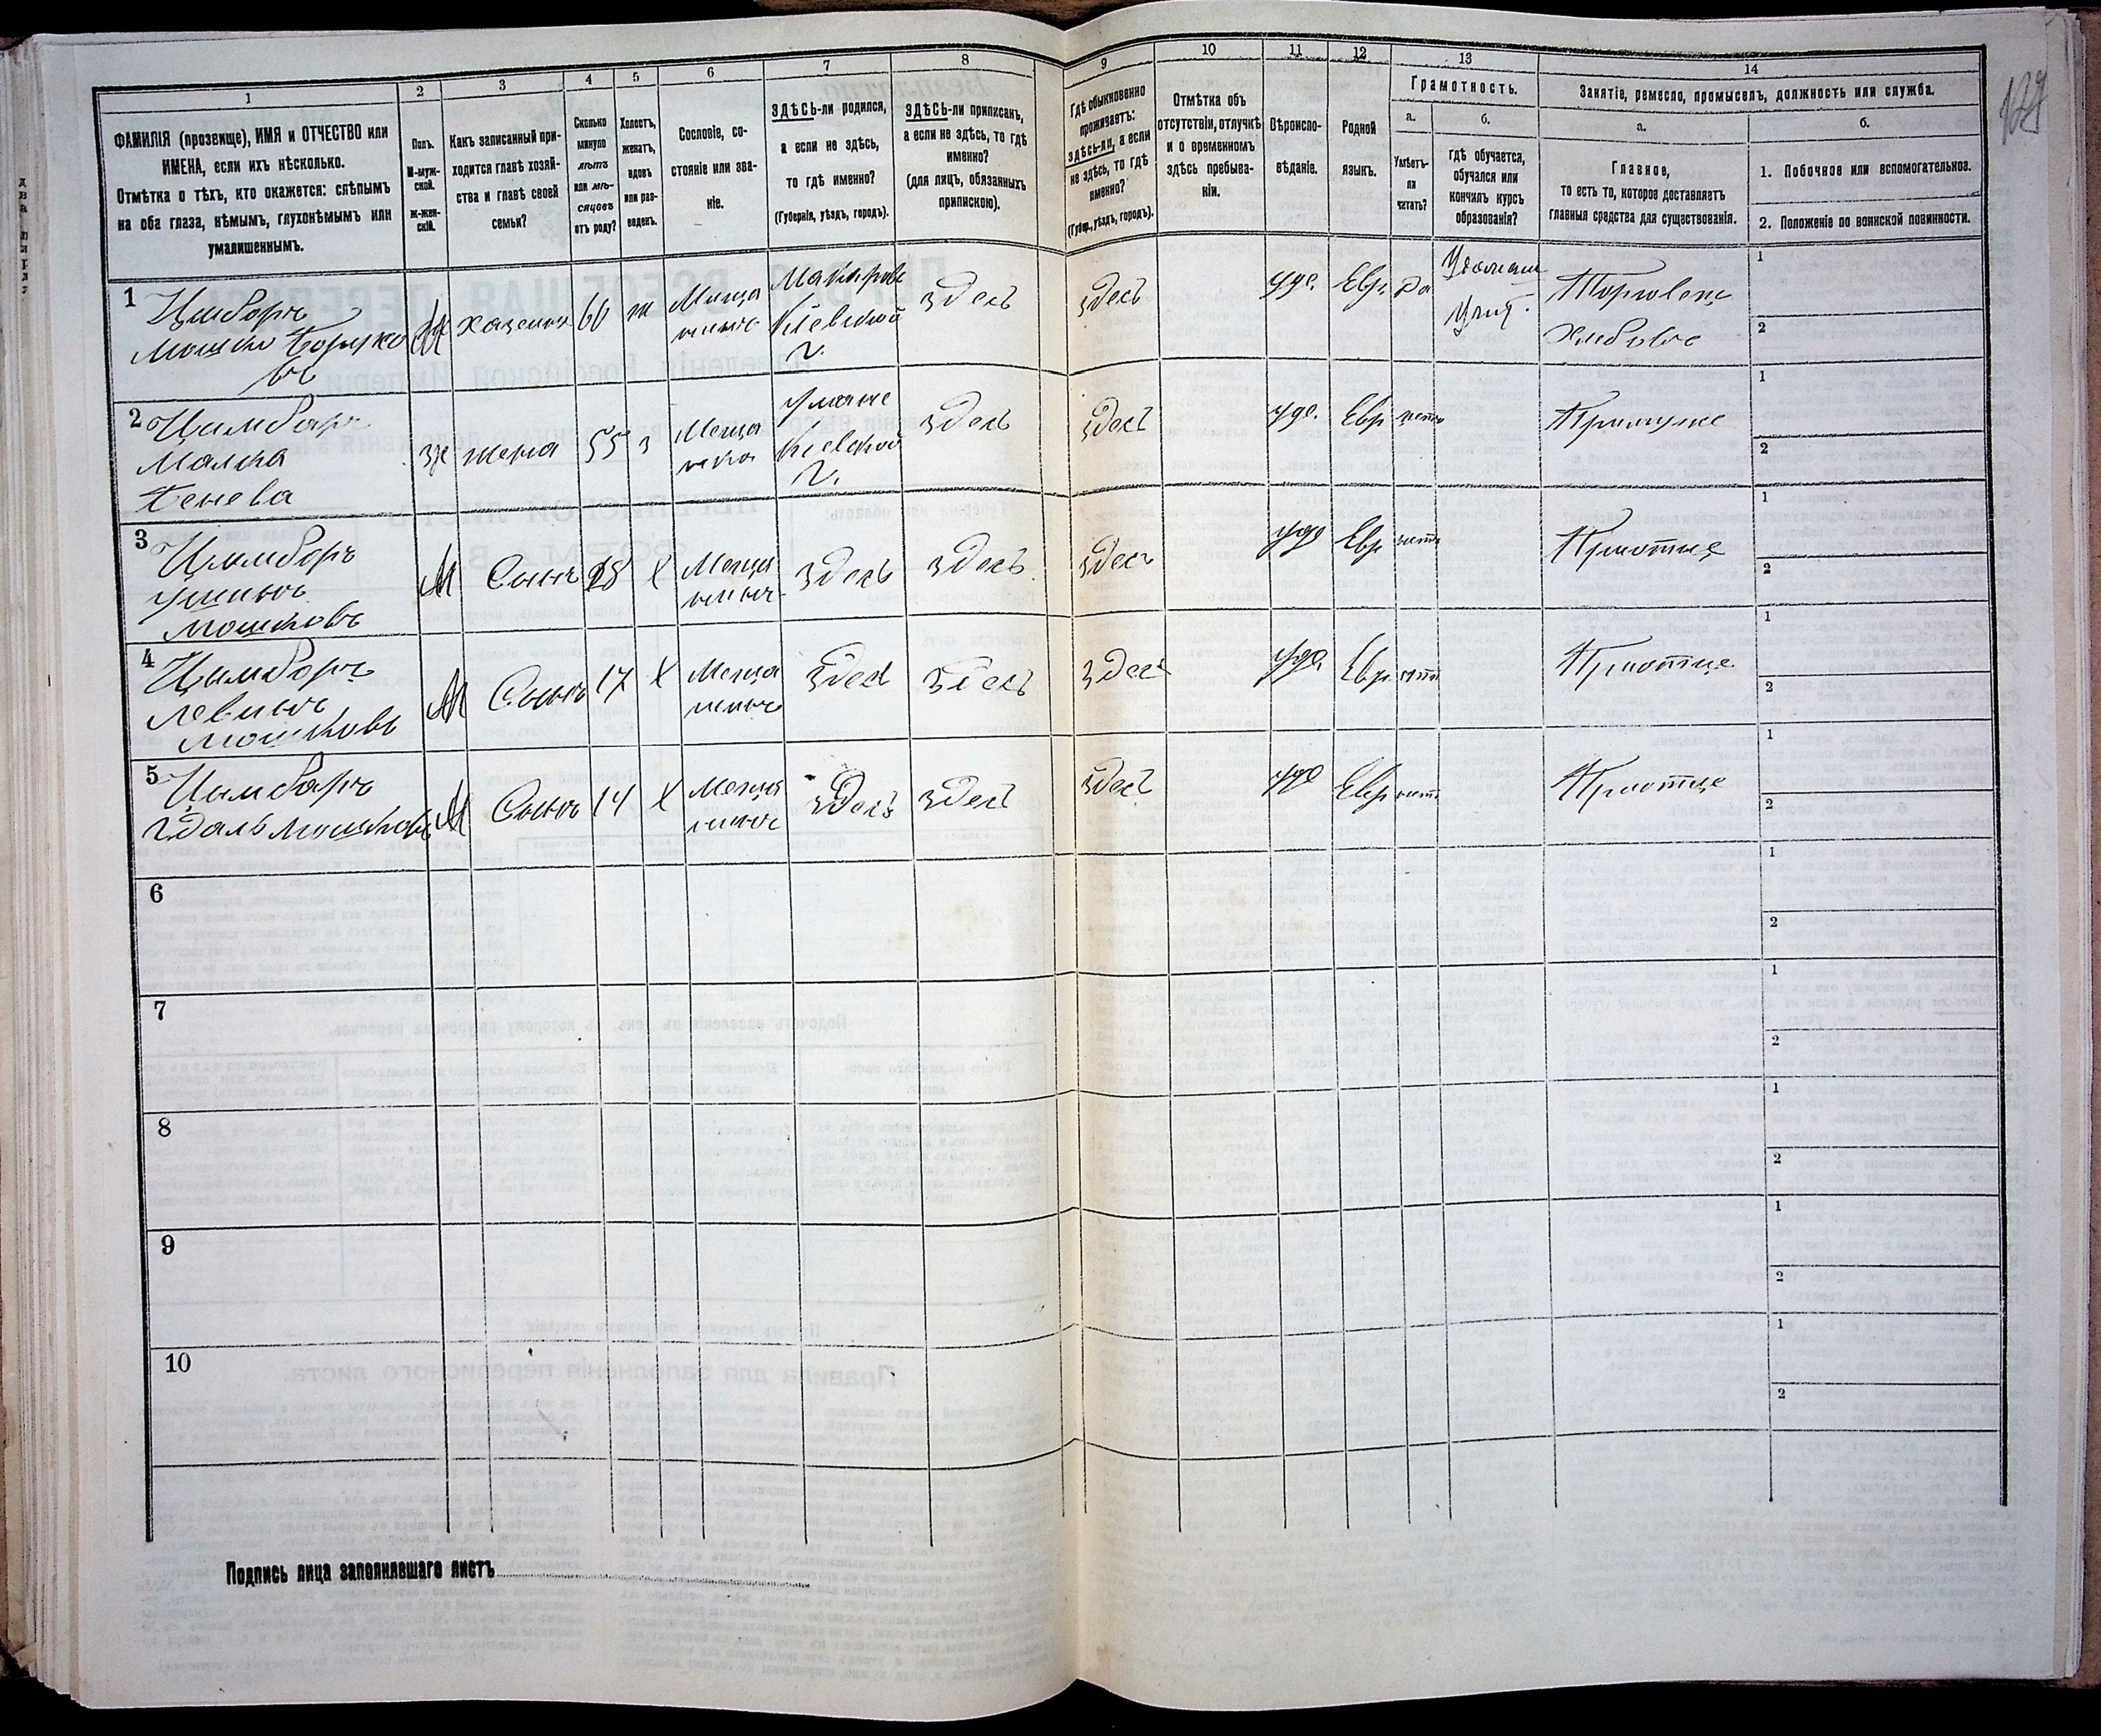 1
2
3
4
5
6
7
8
9
10
11
12
13
14
ФАМИЛІЯ (прозвище), ИМЯ и ОТЧЕСТВО или
ИМЕНА, если ихъ нѣсколько.
Отмѣтка о тѣхъ, кто окажется: слѣпымъ
на оба глаза, нѣмымъ, глухонѣмымъ или
умалишеннымъ.
Полъ.
М-муж-
ской.
Ж-жен-
скій.
Какъ записанный при-
ходится главѣ хозяй-
ства и главѣ своей
семьи?
Сколько
минуло
лѣтъ
или мѣ-
сяцовъ
отъ роду?
Холостъ,
женатъ,
вдовъ
или раз-
веденъ.
Сословіе, со-
стояніе или зва-
ніе.
ЗДѢСЬ-ли родился,
а если не здѣсь,
то гдѣ именно?
(Губернія, уѣздъ, городъ).
ЗДѢСЬ-ли приписанъ,
а если не здѣсь, то гдѣ
именно?
(для лицъ, обязанныхъ
припискою).
Гдѣ обыкновенно
проживаетъ:
здѣсь-ли, а если
не здѣсь, то гдѣ
именно?
(Губер., уѣздъ, городъ).
Отмѣтка объ
отсутствіи, отлучкѣ
и о временномъ
здѣсь пребыва-
ніи.
Вѣроиспо-
вѣданіе.
Родной
языкъ.
Грамотность.
а.
Умѣетъ-
ли
читать?
б.
гдѣ обучается,
обучался или
кончилъ курсъ
образованія?
Занятіе, ремесло, промыселъ, должность или служба.
а.
Главное,
то есть то, которое доставляетъ
главныя средства для существованія.
б.
1. Побочное или вспомогательное.
2. Положеніе по воинской повинности.
1 Цимборъ
Мошко Борухо
въ
М
60
ж
Меща
нинъ
Киевской
г.
здесь
здесь
іуде.
Евр.
да
Торговецъ
1
2
2 Цимборъ
Малка
ж
жена
55
з
Меща
нка
Умане
Киевской
г.
здесь
здесь
іуде.
Евр
нетъ
При муже
1
2
3 Цимборъ
Мошковъ
М
Сынъ
28
Х
Меща
нинъ
здесь
здесь
здесь
іуде
Евр
нетъ
При отце
1
2
4 Цимборъ
Мошковъ
М
Сынъ
17
Х
Меща
нинъ
здесь
здесь
здесь
іуде.
Евр.
нетъ
При отце
1
2
5 Цимборъ
Гдаль Мошковъ
М
Сынъ
14
Х
Меща
нинъ
здесь
здесь
здесь
іуде
Евр
нетъ
При отце
1
2
6
1
2
7
1
2
8
1
2
9
1
2
10
1
2
Подпись лица заполнявшаго листъ